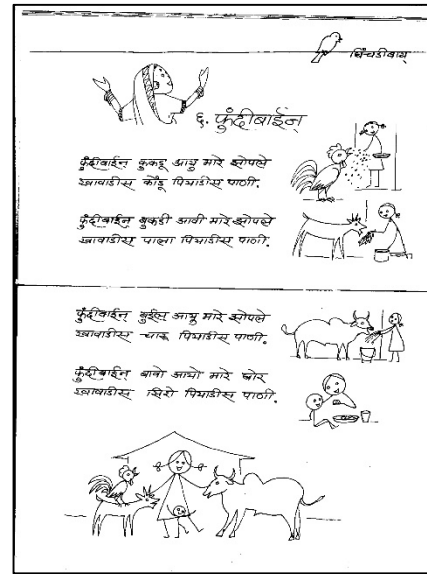 चिंचडीबाय
६. फुंदीबाईन्
फुंदीबाईन् कुकडू आयु मारे झोपले
खावाडीस कोंडू पियाडीस पाणी.
फुंदीबाईन् बुकडी आवी मारे झोपले
खावाडीस पाला पियाडीस पाणी.
फुंदीबाईन् बुईल आयु मारे झोपले
खावाडीस चारू पियाडीस पाणी.
फुंदीबाईन् बावो आयो मारे घोर
खावाडीस सिरो पियाडीस पाणी.